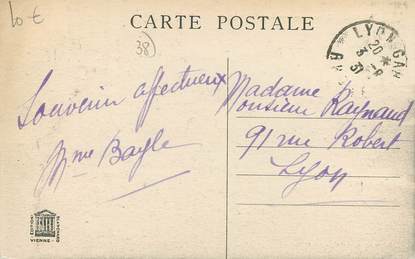 10 €
CARTE POSTALE
38
LYON GARE
20 *
3 - 8
31
Souvenir affectueux
Mme Bayle
Madame
Monsieur Raynaud
91 rue Robert
Lyon
EDITION
BLANCHARD
VIENNE